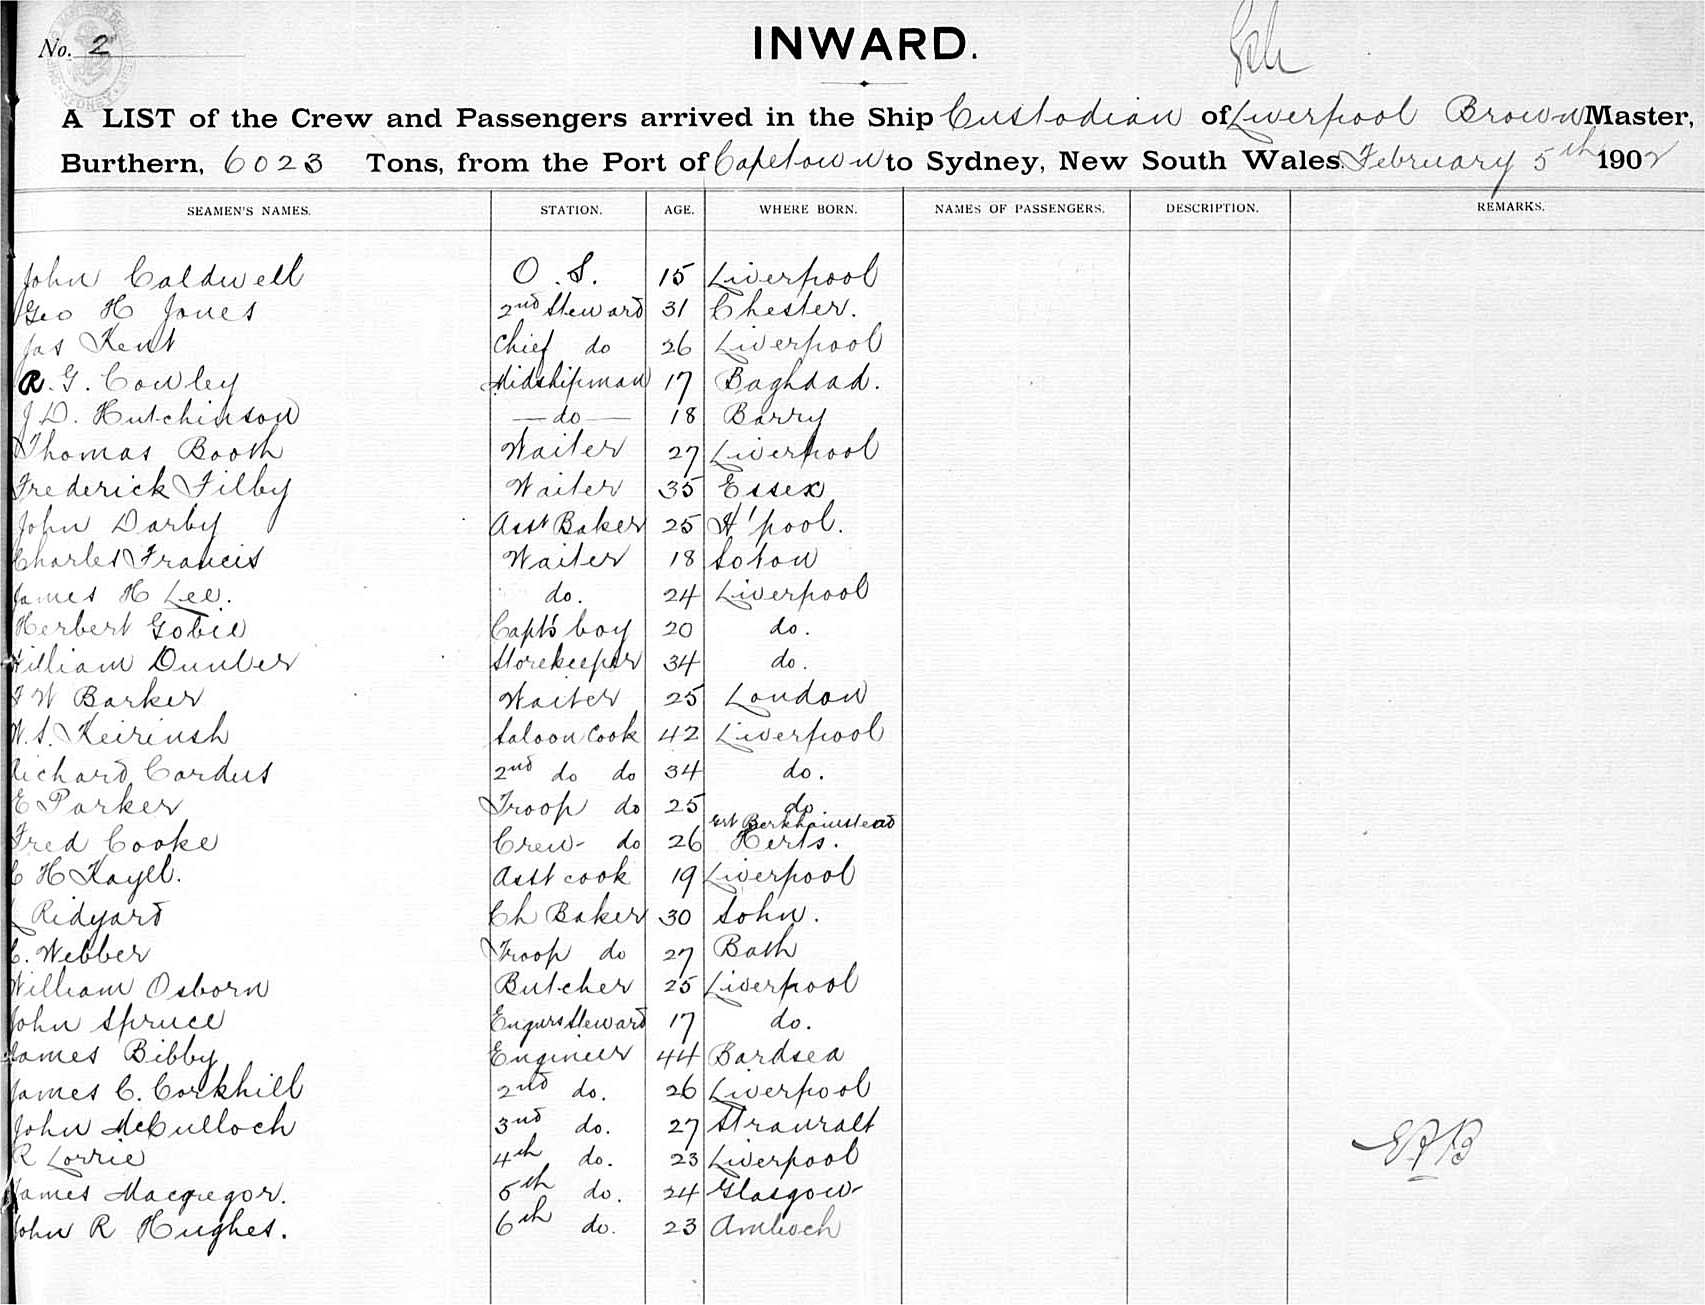 No. 2
INWARD.
A LIST of the Crew and Passengers arrived in the Ship Custodian of Liverpool Brown Master,
Burthern, 6023 Tons, from the Port of Capetown to Sydney, New South Wales February 5th 1902
SEAMEN'S NAMES. STATION. AGE. WHERE BORN. NAMES OF PASSENGERS. DESCRIPTION. REMARKS.
John Caldwell O.S. 15 Liverpool
Geo H Jones 2nd Steward 31 Chester.
Jas Kent Chief do 26 Liverpool
R. G. Cowley Midshipman 17 Baghdad.
J D. Hutchinson — do — 18 Barry
Thomas Booth Waiter 27 Liverpool
Frederick Filby Waiter 35 Essex
John Darby Asst Baker 25 H'pool.
Charles Francis Waiter 18 Soton
James H Lee. do. 24 Liverpool
Herbert Gobie Capt's boy 20 do.
William Dunber Storekeeper 34 do.
F W Barker Waiter 25 London
W. S. Keirinsh Saloon Cook 42 Liverpool
Richard Cardus 2nd do do 34 do.
E Parker Troop do 25 do
Fred Cooke Crew do 26 Gt Berkhamstead
Herts.
C H Kayll. Asst cook 19 Liverpool
Ridyard Ch Baker 30 Sohn.
C. Webber Troop do 27 Bath
William Osborn Butcher 25 Liverpool
John Spruce Engnrs Steward 17 do.
James Bibby Engineer 44 Bardsea
James C. Corkhill 2nd do. 26 Liverpool
John McCulloch 3rd do. 27 Stranralt
R Lorrie 4th do. 23 Liverpool
James Macgregor. 5th do. 24 Glasgow
John R Hughes. 6th do. 23 Amloch